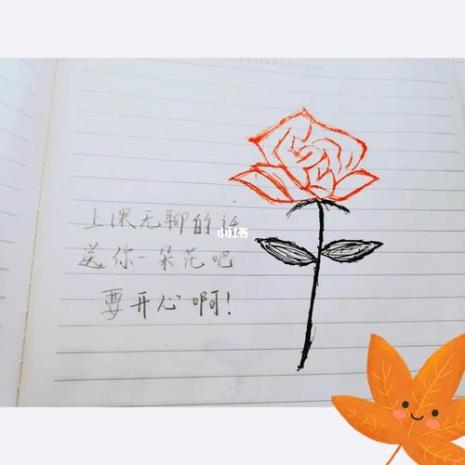 上课无聊的话
小红书
送你一朵花吧
要开心啊!